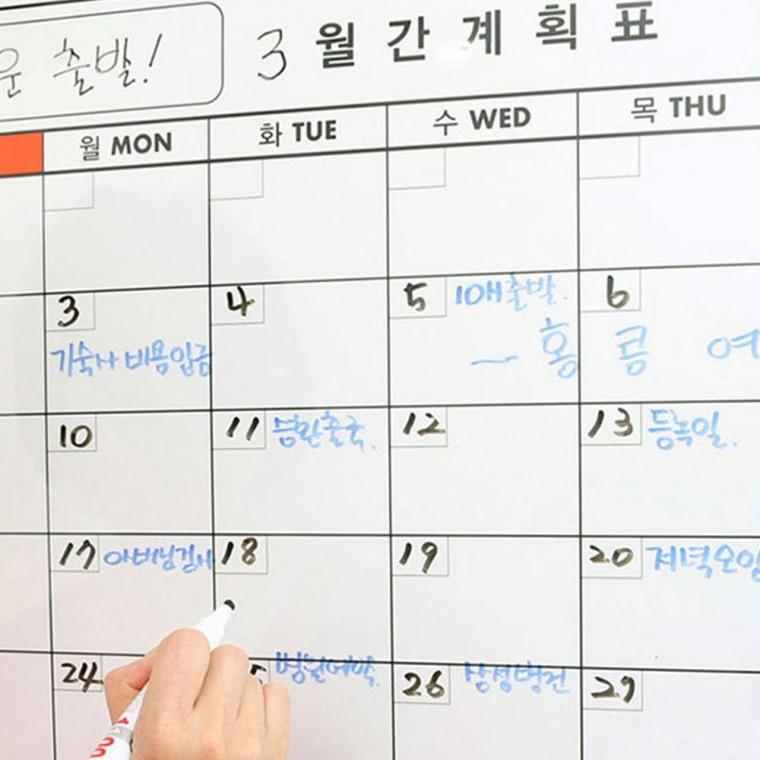 출발!
3월간계획표
월 MON 화 TUE 수 WED 목 THU
3 4 5 10시출발. 6
기숙사 비용입금 ~홍콩 여
10 11 출국. 12 13 등록일.
17 아버님검사 18 19 20 저녁모임
24 병원예약. 26 삼성병원 27